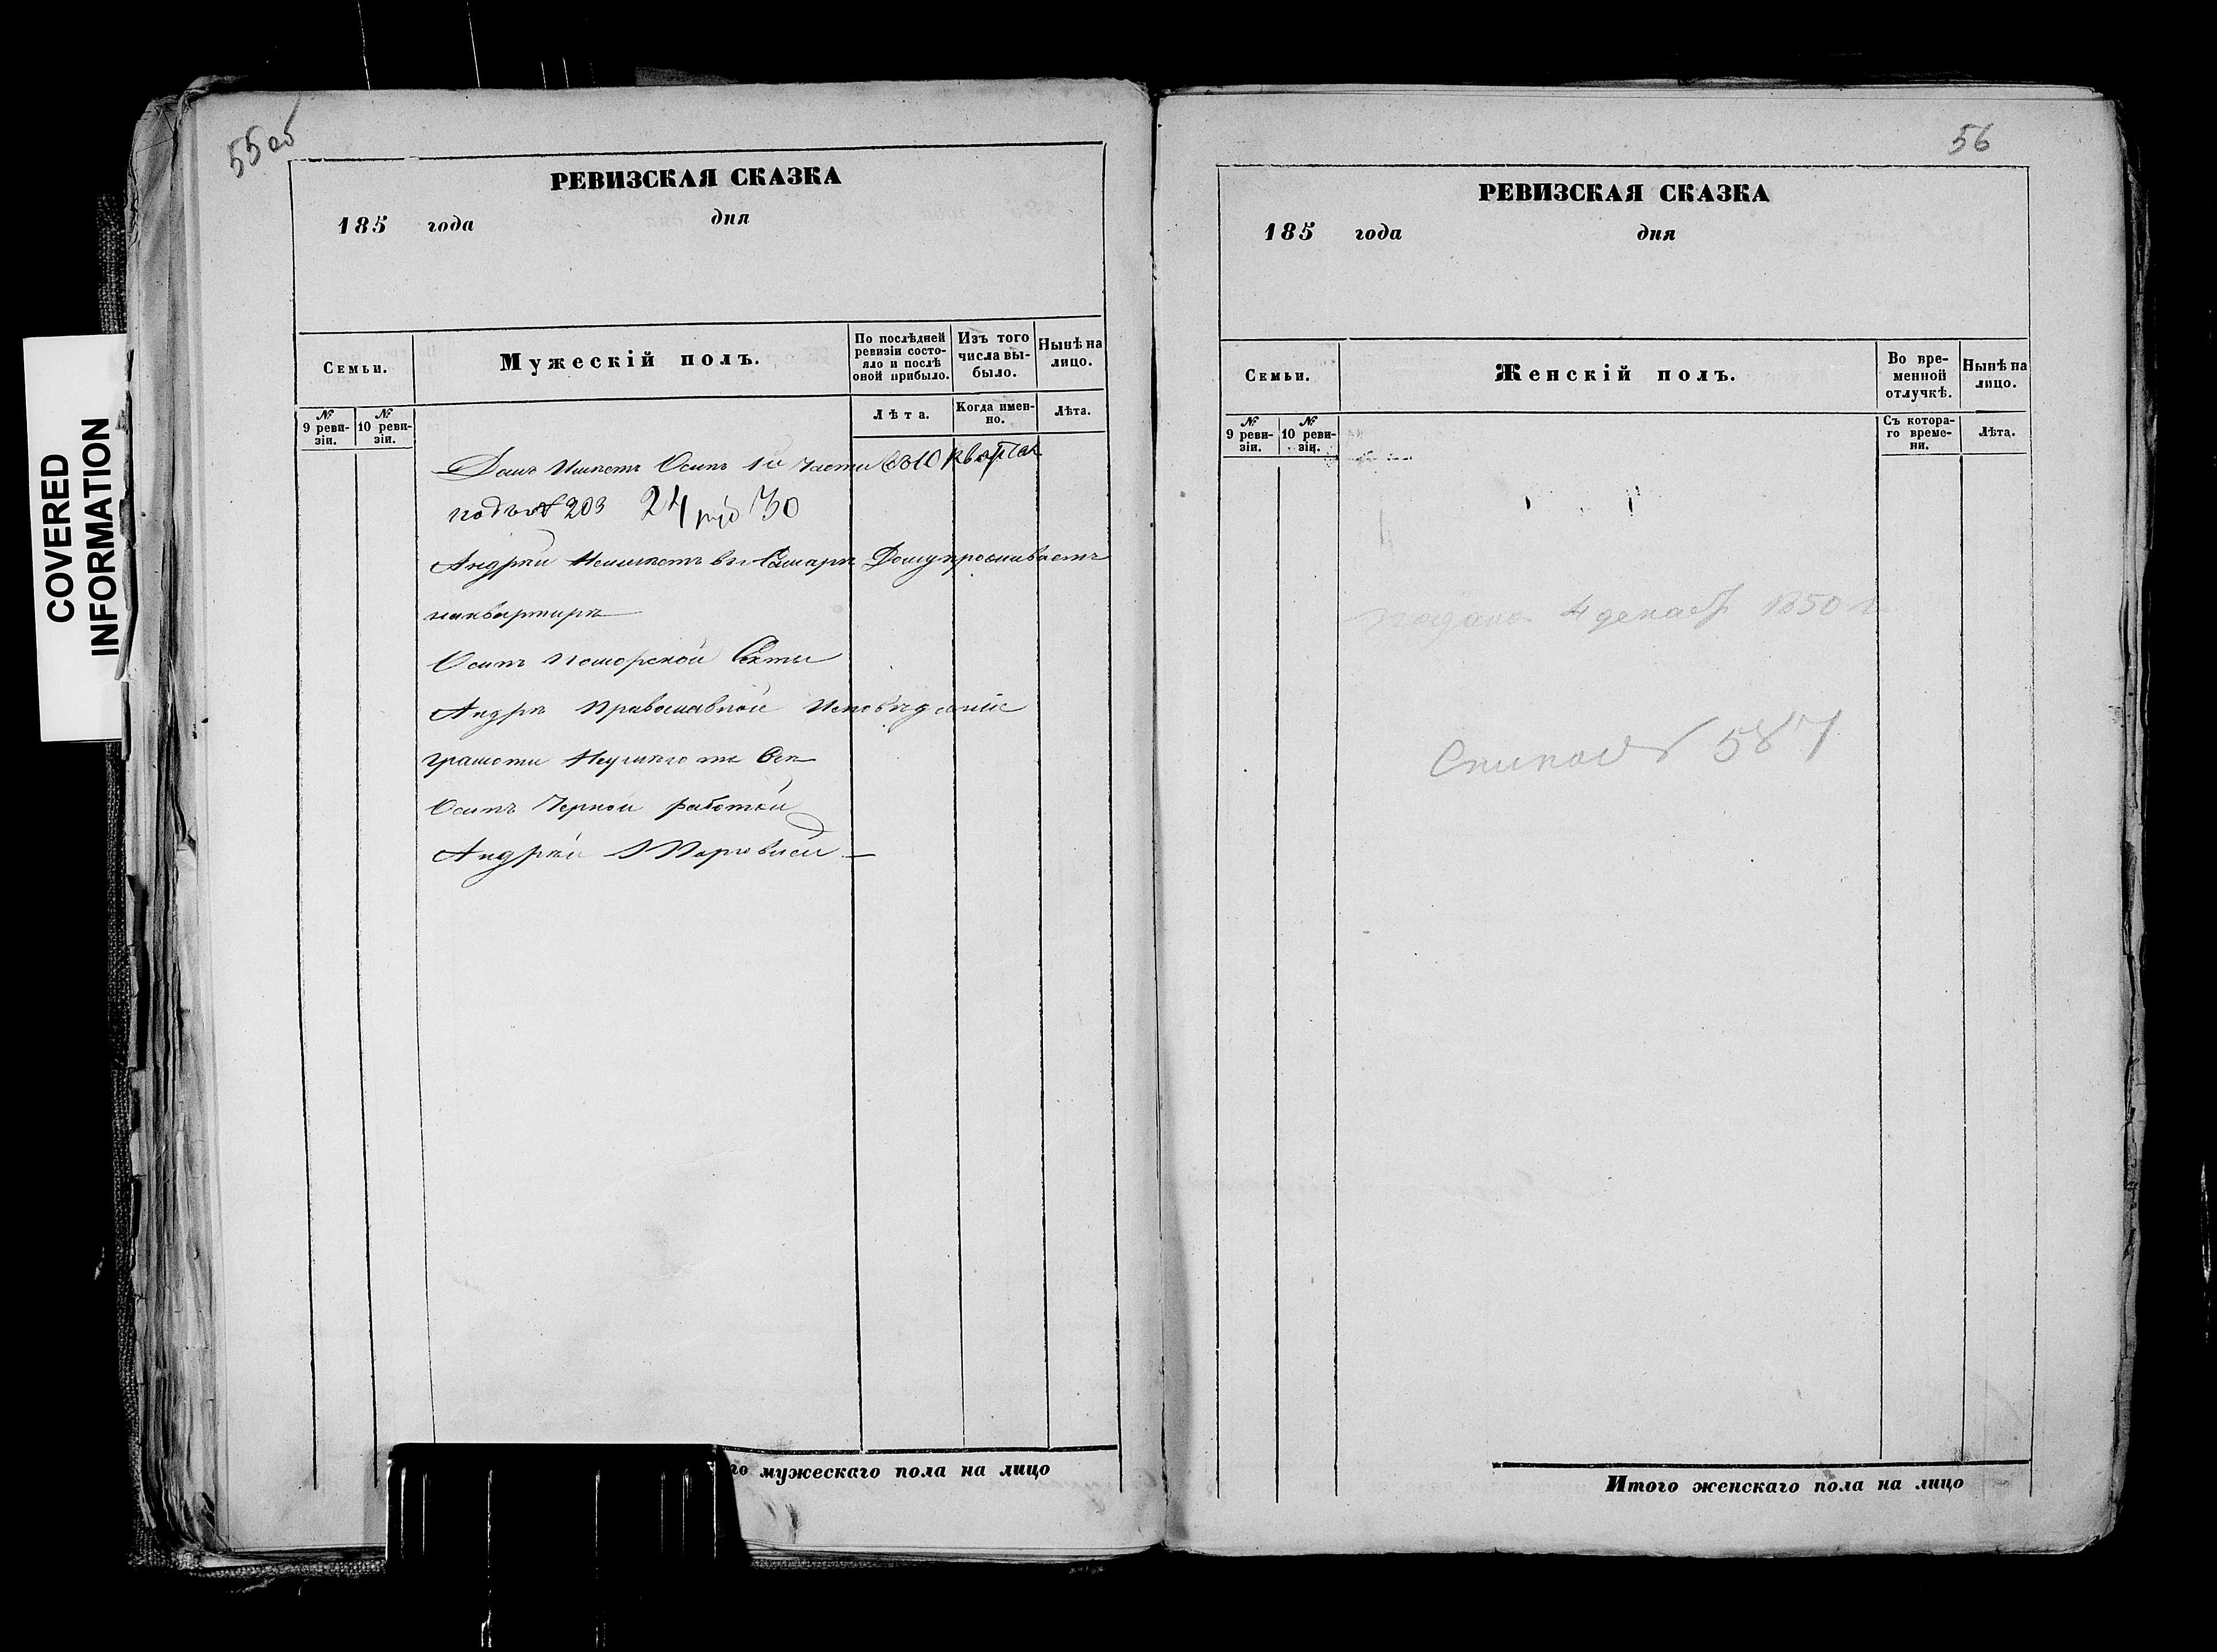 COVERED
INFORMATION
55 об
РЕВИЗСКАЯ СКАЗКА
185 года дня
Семьи.
Мужескій полъ.
По послѣдней ревизіи состояло и послѣ оной прибыло.
Изъ того числа выбыло.
Нынѣ на лицо.
№ 9 ревизіи.
№ 10 ревизіи.
Лѣта.
Когда именно.
Лѣта.
Домъ Имѣетъ Осипъ 1й Части
подъ № 203 24 руб 30
Андрей Неимѣетъ въ Самарѣ Дому проживаетъ
наквартирѣ
Осипъ Поморской Секты
Андрѣ Православной Исповѣданіе
грамоти
Осипъ Черной работой
Андрей Торговлей
56
РЕВИЗСКАЯ СКАЗКА
185 года дня
Семьи.
Женскій полъ.
Во временной отлучкѣ.
Нынѣ на лицо.
№ 9 ревизіи.
№ 10 ревизіи.
Съ котораго времени.
Лѣта.
подана 4 декаб 1850 г
587
го мужескаго пола на лицо
Итого женскаго пола на лицо